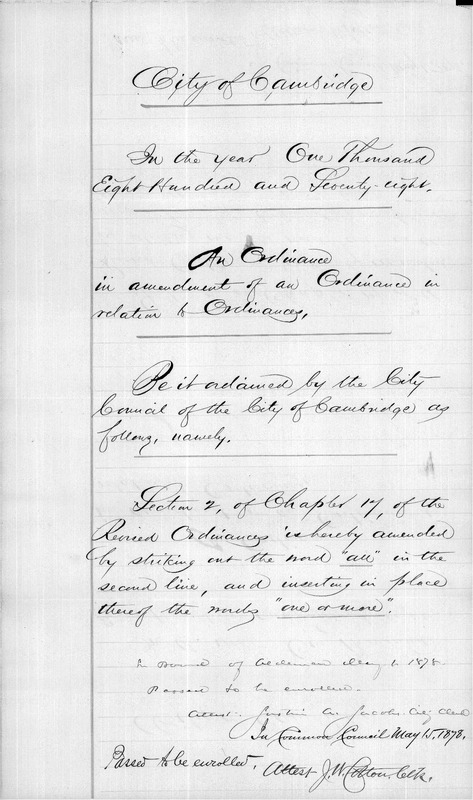 City of Cambridge
In the year One Thousand
Eight Hundred and Seventy-eight.
An Ordinance
in amendment of an Ordinance in
relation to Ordinances.
Be it ordained by the City
Council of the City of Cambridge as
follows, namely.
Section 2, of Chapter 17, of the
Revised Ordinances is hereby amended
by striking out the word "all" in the
second line, and inserting in place
thereof the words "one or more".
In Board of Aldermen May 1. 1878.
Passed to be enrolled.
Attest. Justin A. Jacobs City Clerk
In Common Council May 15, 1878.
Passed to be enrolled.
Attest J. W. Cotton, Clk.